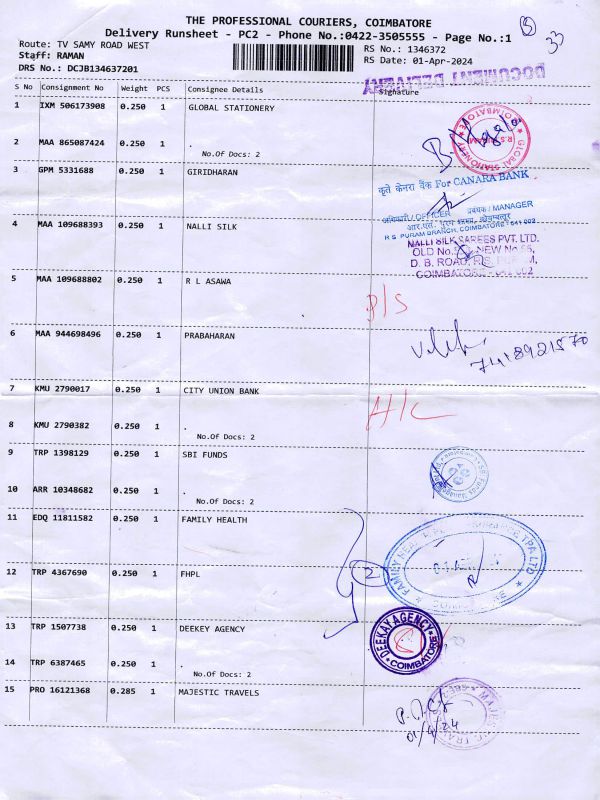 THE PROFESSIONAL COURIERS, COIMBATORE
Delivery Runsheet - PC2 - Phone No.:0422-3505555 - Page No.:1
5
33
Route: TV SAMY ROAD WEST
RS No.: 1346372
Staff: RAMAN
RS Date: 01-Apr-2024
DRS No.: DCJB134637201
DOCUMENT DELIVERY
S No Consignment No Weight PCS Consignee Details Signature
1 IXM 506173908 0.250 1 GLOBAL STATIONERY
2 MAA 865087424 0.250 1 .
No.Of Docs: 2
3 GPM 5331688 0.250 1 GIRIDHARAN
कृते केनरा बैंक For CANARA BANK
अधिकारी / OFFICER प्रबंधक / MANAGER
R S PURAM BRANCH, COIMBATORE - 641 002
4 MAA 109688393 0.250 1 NALLI SILK
NALLI SILK SAREES PVT. LTD.
OLD No. NEW No
D. B. ROAD, R.S. PURAM,
COIMBATORE - 641 002
5 MAA 109688802 0.250 1 R L ASAWA
D/S
6 MAA 944698496 0.250 1 PRABAHARAN
7 KMU 2790017 0.250 1 CITY UNION BANK
A/C
8 KMU 2790382 0.250 1 .
No.Of Docs: 2
9 TRP 1398129 0.250 1 SBI FUNDS
10 ARR 10348682 0.250 1 .
No.Of Docs: 2
11 EDQ 11811582 0.250 1 FAMILY HEALTH
12 TRP 4367690 0.250 1 FHPL
2
13 TRP 1507738 0.250 1 DEEKEY AGENCY
DEEKAY AGENCY
COIMBATORE
14 TRP 6387465 0.250 1 .
No.Of Docs: 2
15 PRO 16121368 0.285 1 MAJESTIC TRAVELS
01/4/24